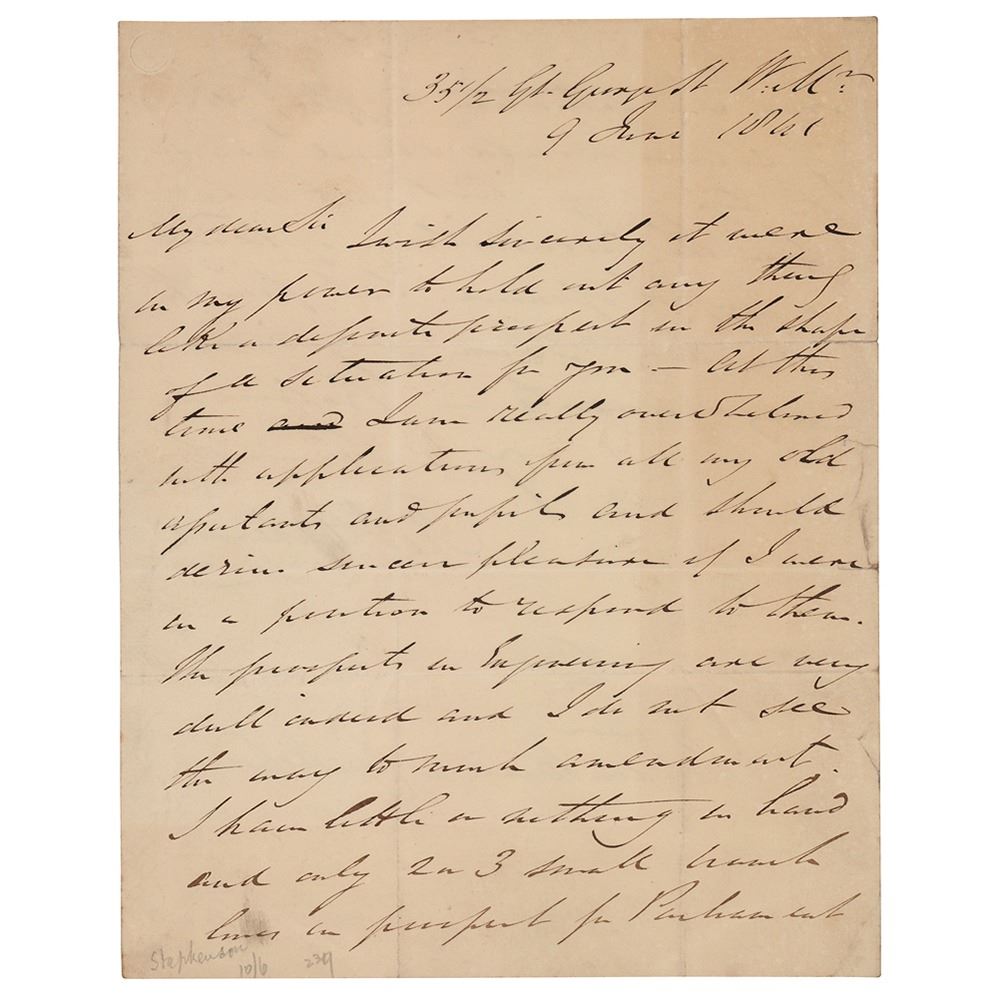 35 1/2 Gt. George St Westr.
9 June 1841
My dear Sir I wish sincerely it were
in my power to hold out any thing
like a definite prospect in the shape
of a situation for you – at this
time and I am really overwhelmed
with applications from all my old
assistants and pupils and should
derive sincere pleasure if I were
in a position to respond to them.
The prospects in Engineering are very
dull indeed and I do not see
the way to much amendment.
I have little or nothing in hand
and only 2 or 3 small branch
lines in prospect for Parliament
Stephenson
10/6 239